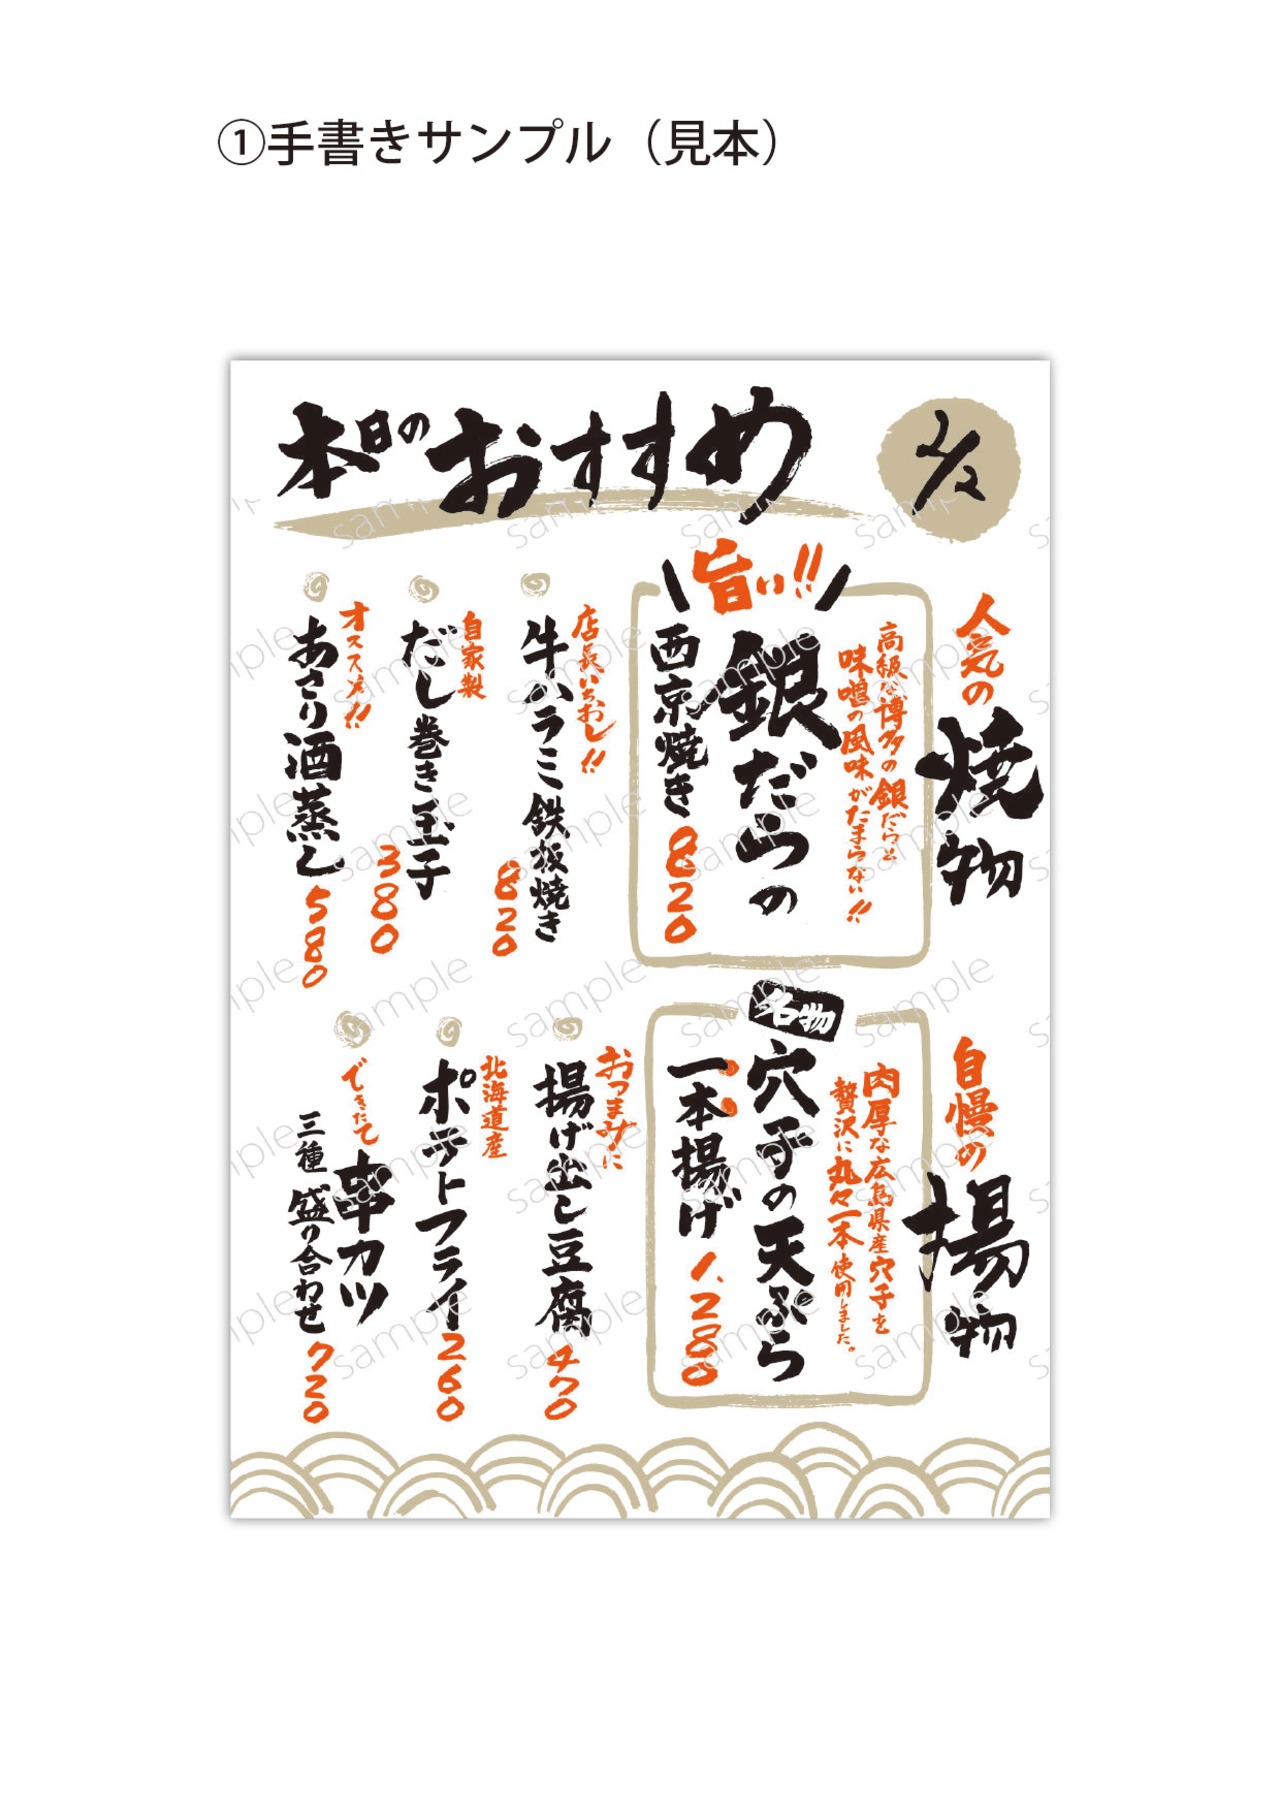 ①手書きサンプル（見本）
本日のおすすめ
2/2
人気の
焼物
旨い!!
高級な博多の銀だらと
味噌の風味がたまらない!!
銀だらの
西京焼き
820
店長いちおし!!
牛ハラミ鉄板焼き
820
自家製
だし巻き玉子
380
オススメ!!
あさり酒蒸し
580
自慢の
揚物
名物
肉厚な広島県産穴子を
贅沢に丸々一本使用しました。
穴子の天ぷら
一本揚げ
1,280
おつまみに
揚げ出し豆腐
470
北海道産
ポテトフライ
260
できたて
串カツ
三種盛り合わせ
720
sample